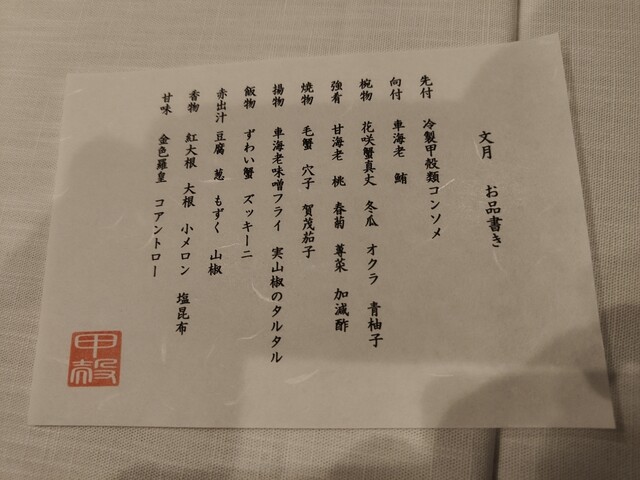 文月 お品書き
先付 冷製甲殻類コンソメ
向付 車海老 鮪
椀物 花咲蟹真丈 冬瓜 オクラ 青柚子
強肴 甘海老 桃 春菊 蓴菜 加減酢
焼物 毛蟹 穴子 賀茂茄子
揚物 車海老味噌フライ 実山椒のタルタル
飯物 ずわい蟹 ズッキーニ
赤出汁 豆腐 葱 もずく 山椒
香物 紅大根 大根 小メロン 塩昆布
甘味 金色羅皇 コアントロー
甲殻